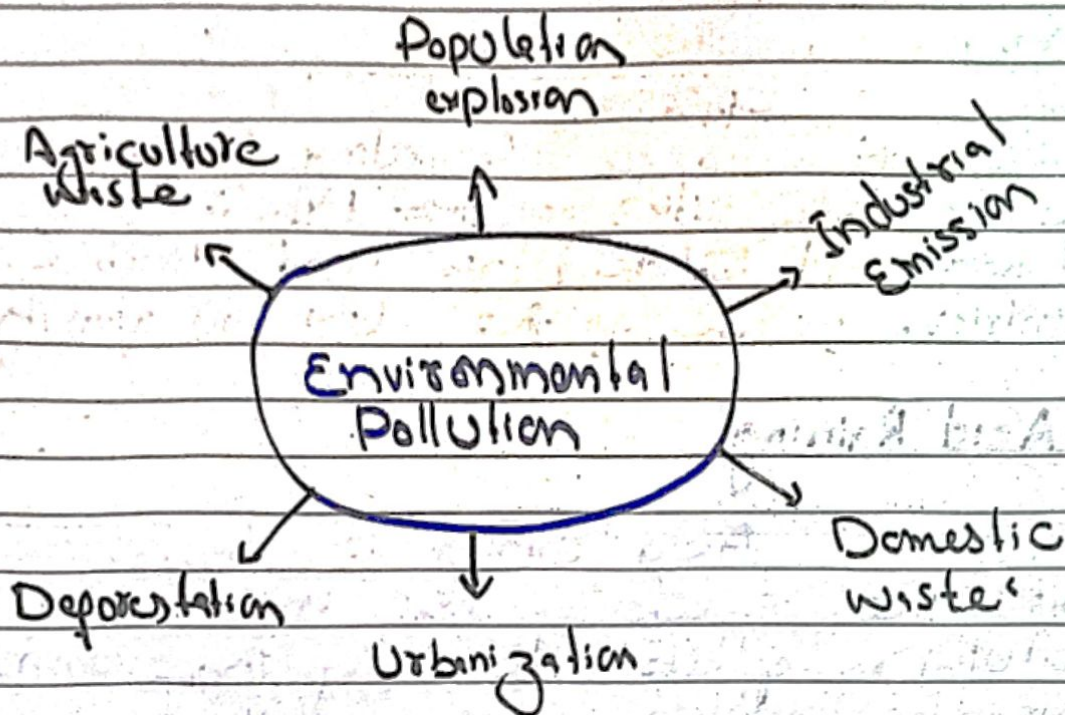 Population
explosion
Agriculture
Waste
Industrial
Emission
Environmental
Pollution
Domestic
waste
Deforestation
Urbanization